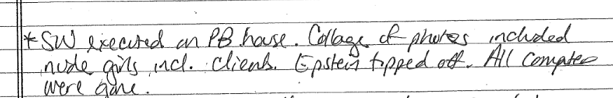 * SW executed on PB house. Collage of photos included
nude girls incl. clients. Epstein tipped off. All computers
were gone.